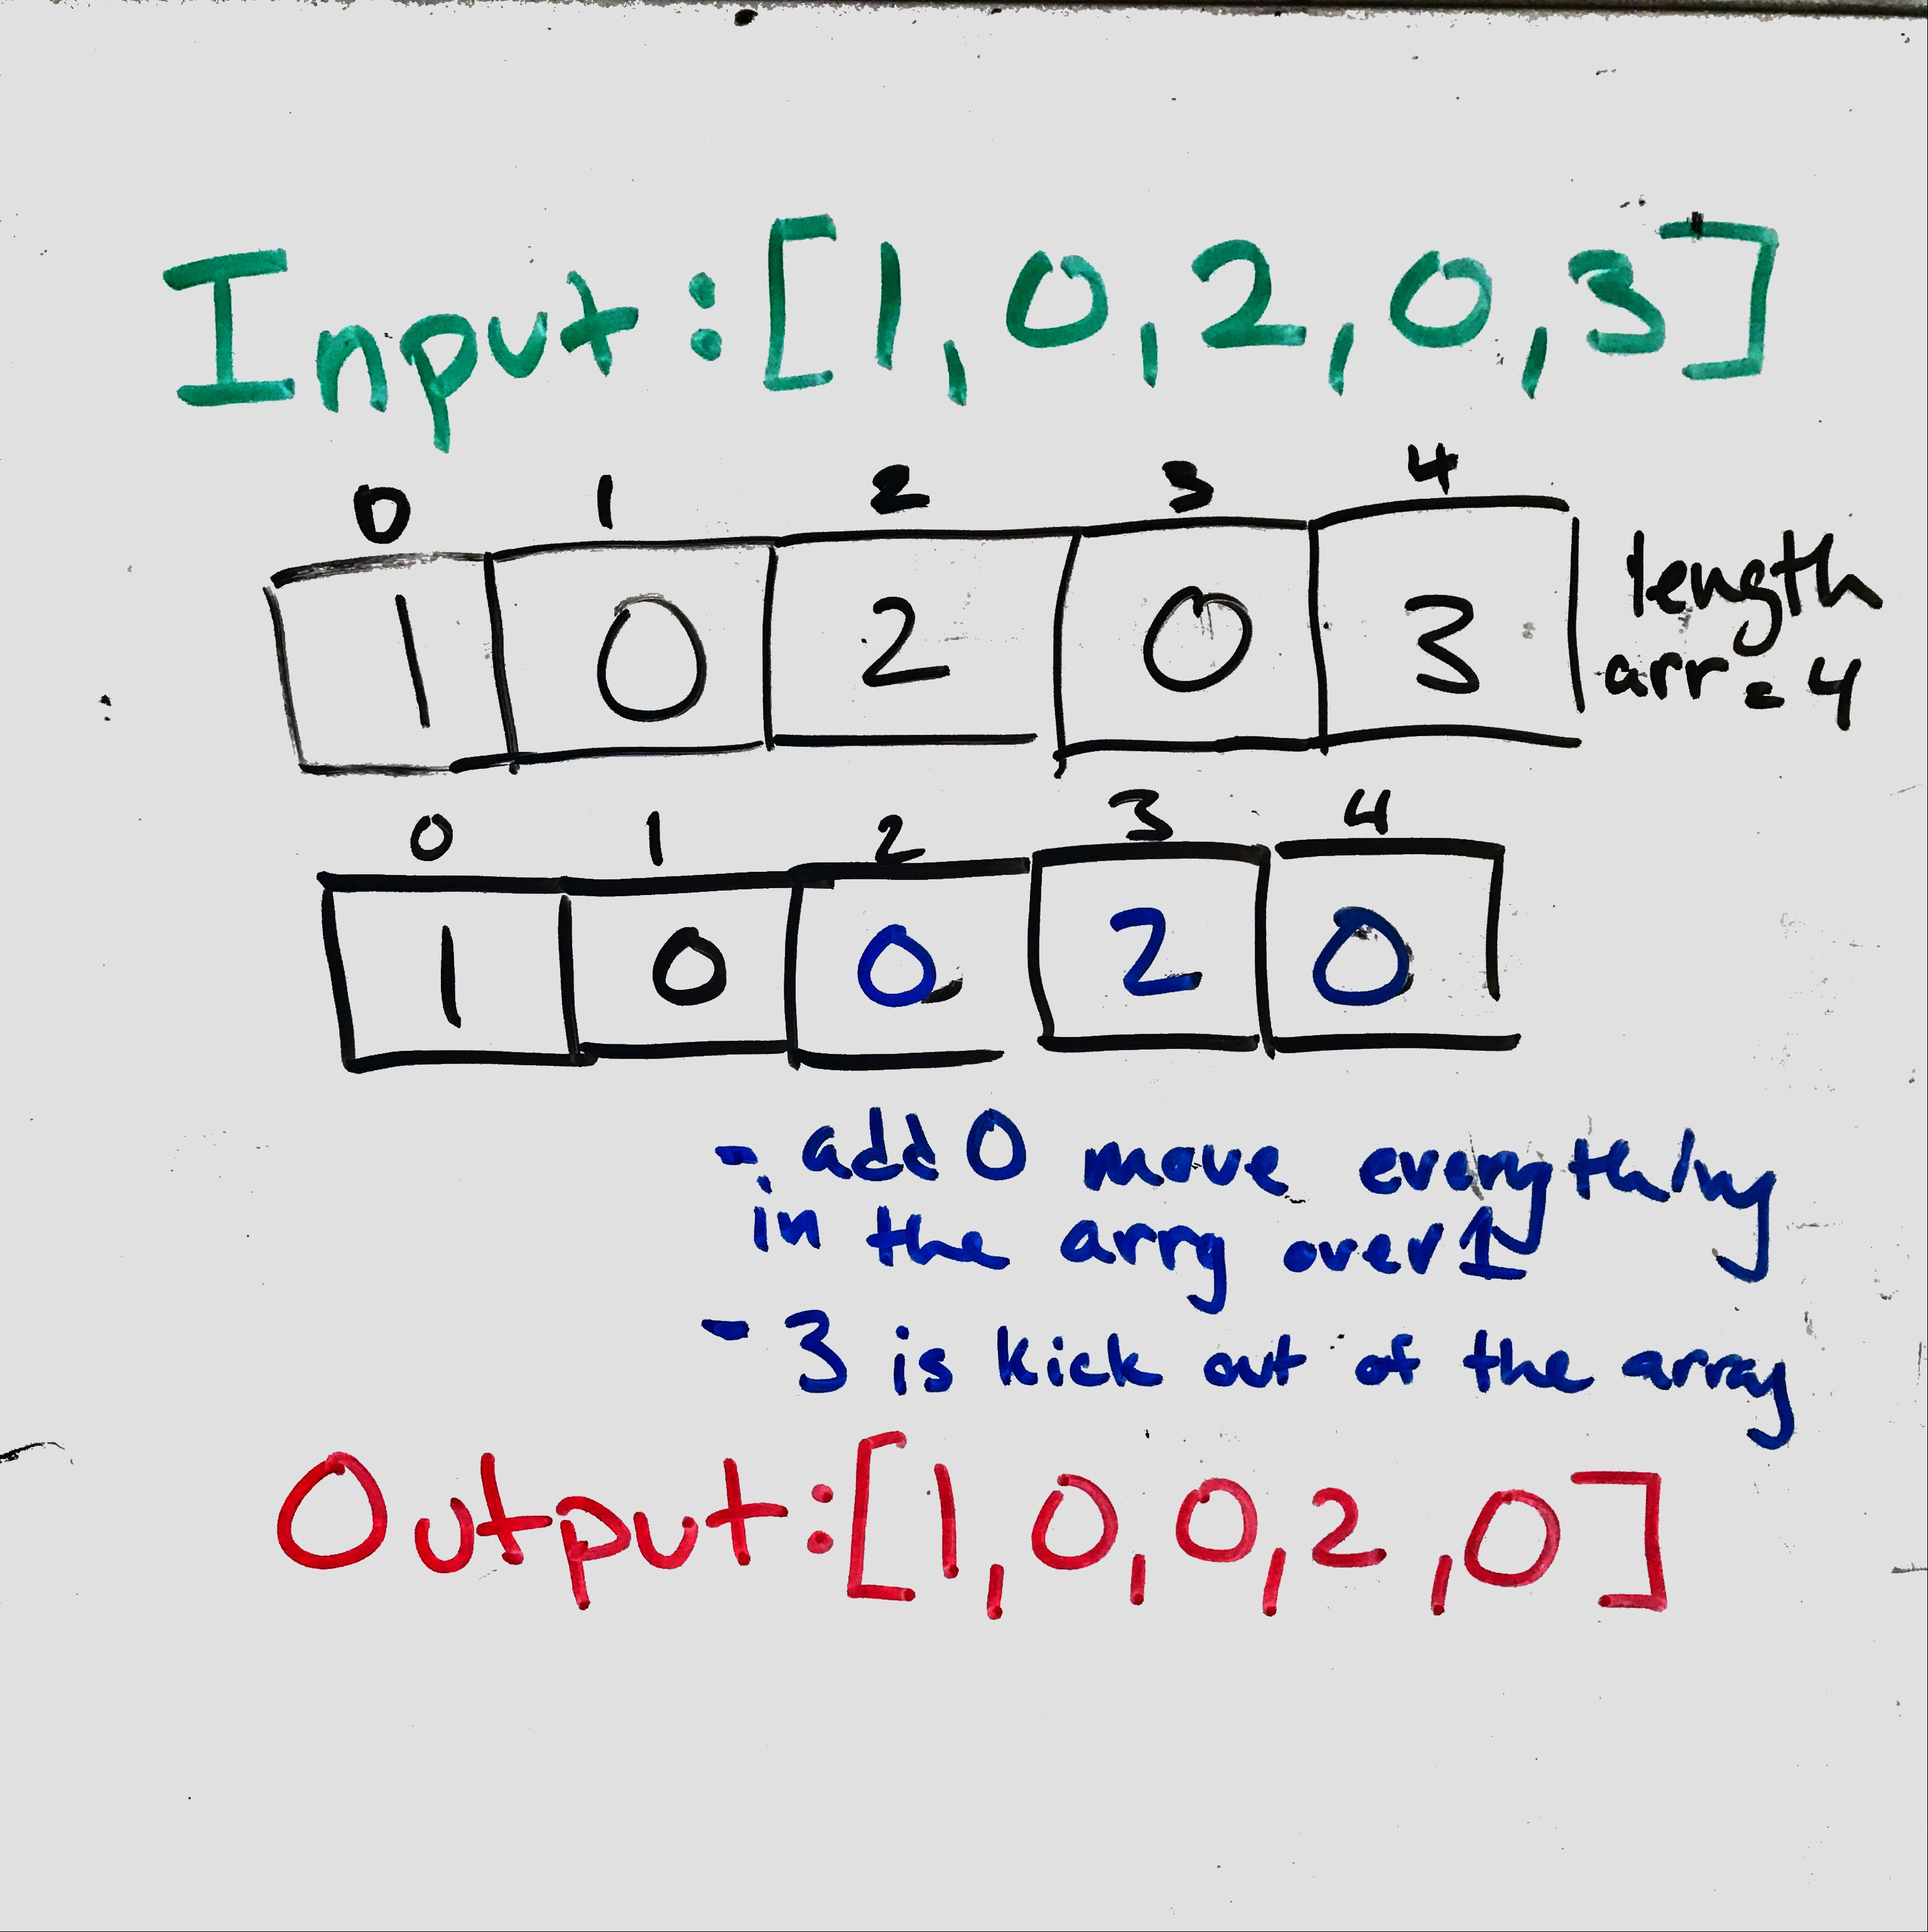 Input:[1,0,2,0,3]
0 1 2 3 4
1 0 2 0 3
length
arr=4
0 1 2 3 4
1 0 0 2 0
- add 0 move everything
in the arry over 1
- 3 is kick out of the array
Output:[1,0,0,2,0]